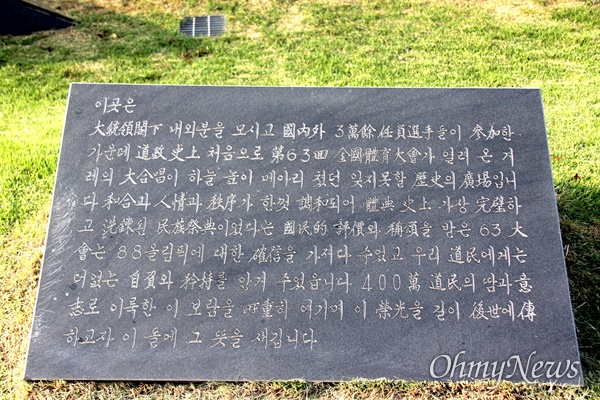 이곳은
大統領閣下 내외분을 모시고 國内外 3萬餘 任員選手들이 參加한
가운데 道政史上 처음으로 第63回 全國體育大會가 열려 온 겨
레의 大合唱이 하늘 높이 메아리 쳤던 잊지못할 歷史의 廣場입니
다 和合과 人情과 秩序가 한껏 調和되어 體典史上 가장 完璧하
고 洗鍊된 民族祭典이었다는 國民的 評價와 稱頌을 받은 63 大
會는 88올림픽에 대한 確信을 가져다 주었고 우리 道民에게는
더없는 自負와 矜持를 안겨 주었습니다 400萬 道民의 땀과 意
志로 이룩한 이 보람을 貴重히 여기며 이 榮光을 길이 後世에 傳
하고자 이 돌에 그 뜻을 새깁니다
OhmyNews